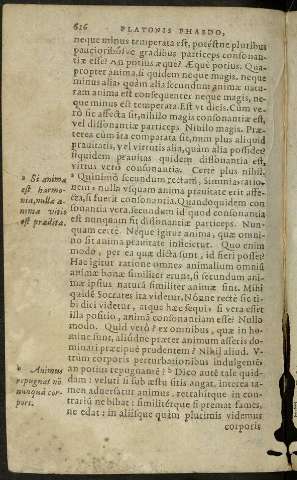 616 PLATONIS PHAEDO,
neque minus temperata est, potéstne pluribus
paucioribúsve gradibus particeps consonan-
tiæ esse? An potius æque? Æque potius. Qua-
propter anima, si quidem neque magis, neque
minus alia quàm alia secundum animæ natu-
ram anima est consequenter neque magis, ne-
que minus est temperata. Est vt dicis. Cùm ve-
rò sic affecta sit, nihilo magis consonantiæ est,
vel dissonantiæ particeps. Nihilo magis. Præ-
terea cùm ita comparata sit, num plus aliquid
prauitatis, vel virtutis alia, quàm alia possidet
siquidem prauitas quidem dissonantia est,
virtus verò consonantia. Certe plus nihil.
a Quinimò secundum rectam, Simmia, ratio-
nem: nulla vsquam anima prauitate erit affe-
cta, si fuerit consonantia. Quandoquidem con
sonantia vera, secundum id quod consonantia
est nunquam fit dissonantiæ particeps. Nun-
quam certè. Neque igitur anima, quæ omni-
no sit anima prauitate inficietur. Quo enim
modo, per ea quæ dicta sunt, id fieri posset?
Hac igitur ratione omnes animalium omniũ
animæ bonæ similiter erunt, si secundum ani-
mæ ipsius naturã similiter animæ sint. Mihi
quidẽ Socrates ita videtur. Nónne rectè sic ti-
bi dici videtur, atque hæc sequi, si vera esset
illa positio, animã consonantiam esse? Nullo
modo. Quid verò? ex omnibus, quæ in ho-
mine sunt, aliúdne præter animum asseris do-
minari præcipuè prudentem? Nihil aliud. V-
trùm corporis perturbationibus indulgentẽ,
an potius repugnantẽ? b Dico autẽ tale quid-
dam: veluti si sub æstu sitis angat, interea ta-
men aduersatur animus, retrahítque in con-
trariũ ne bibat: similitérque si premat fames,
ne edat: in aliísque quàm plurimis videmus
corporis
a Si anima
est harmo-
nia, nulla a-
nima vitio
est prædita.
b Animus
repugnat nõ
nunquã cor-
pori.